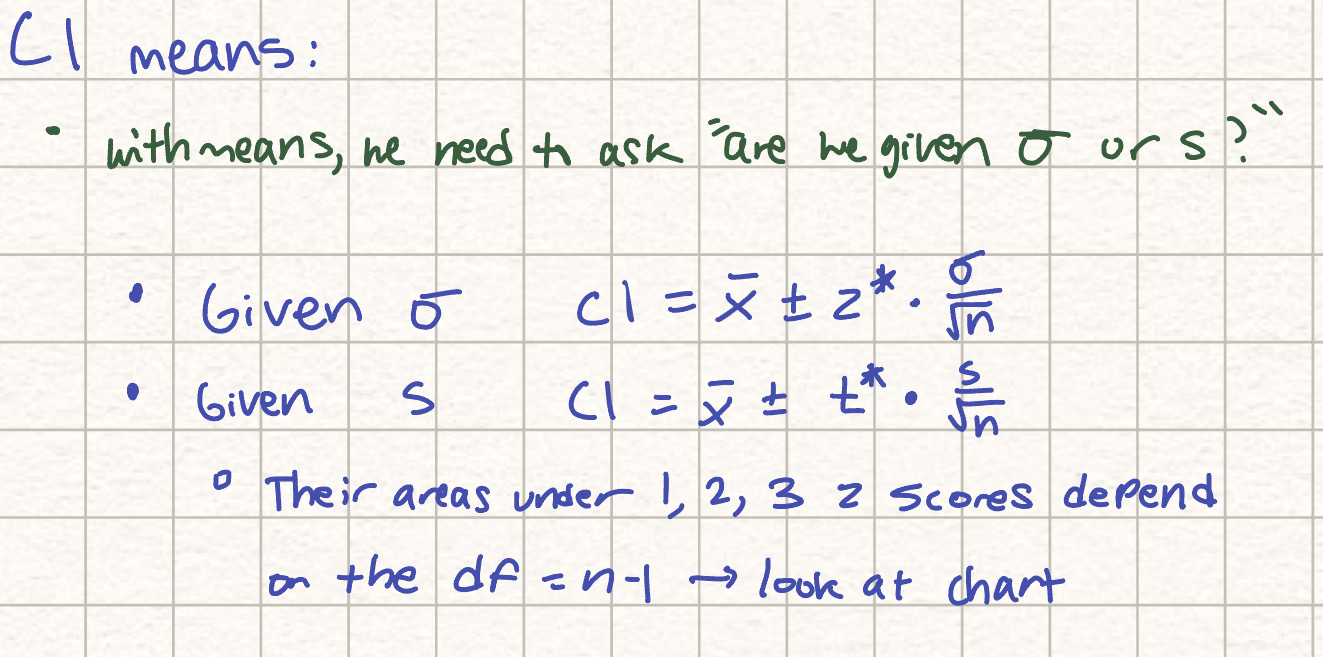 CI means:
• with means, we need to ask "are we given σ or s?"
• Given σ CI = x̄ ± z* · σ/√n
• Given s CI = x̄ ± t* · s/√n
◦ Their areas under 1, 2, 3 z scores depend
on the df = n-1 → look at chart